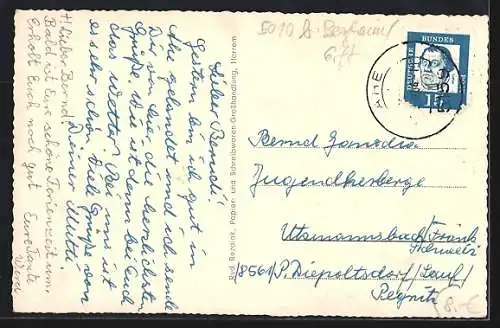 Lieber Bernd!
Gestern bin ich gut in
gelandet und ich sende
Dir von hier die herzlichsten
Grüße. Wie ist denn bei Euch
das Wetter? Bei uns ist
es sehr schön. Viele Grüße von
Deiner Mutti.
Lieber Bernd!
Bald ist Eure schöne Ferienzeit um.
Erholt Euch noch gut. Eure Tante
Red. Bezolat, Papier- und Schreibwaren-Großhandlung, Horrem
5010
DEUTSCHE
BUNDES
15
Bernd
Jugendherberge
Utzmannsbach/Fränk.
Schweiz
8561/P. Diepoltsdorf/Lauf/
Pegnitz